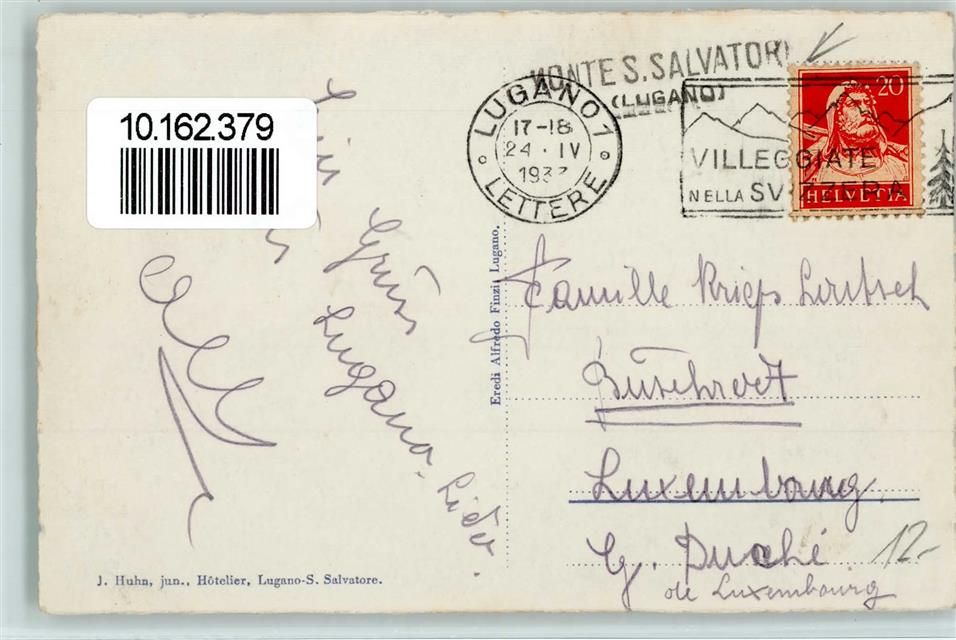 10.162.379
MONTE S. SALVATORE
(LUGANO)
LUGANO 1
17-18
24·IV
193
LETTERE
VILLEGGIATE
NELLA SVIZZERA
20
HELVETIA
Gruss
Lugano-Lido.
Eredi Alfredo Finzi, Lugano.
Famille Krieps
Luxembourg
G. Duché
de Luxembourg
12.-
J. Huhn, jun., Hôtelier, Lugano-S. Salvatore.